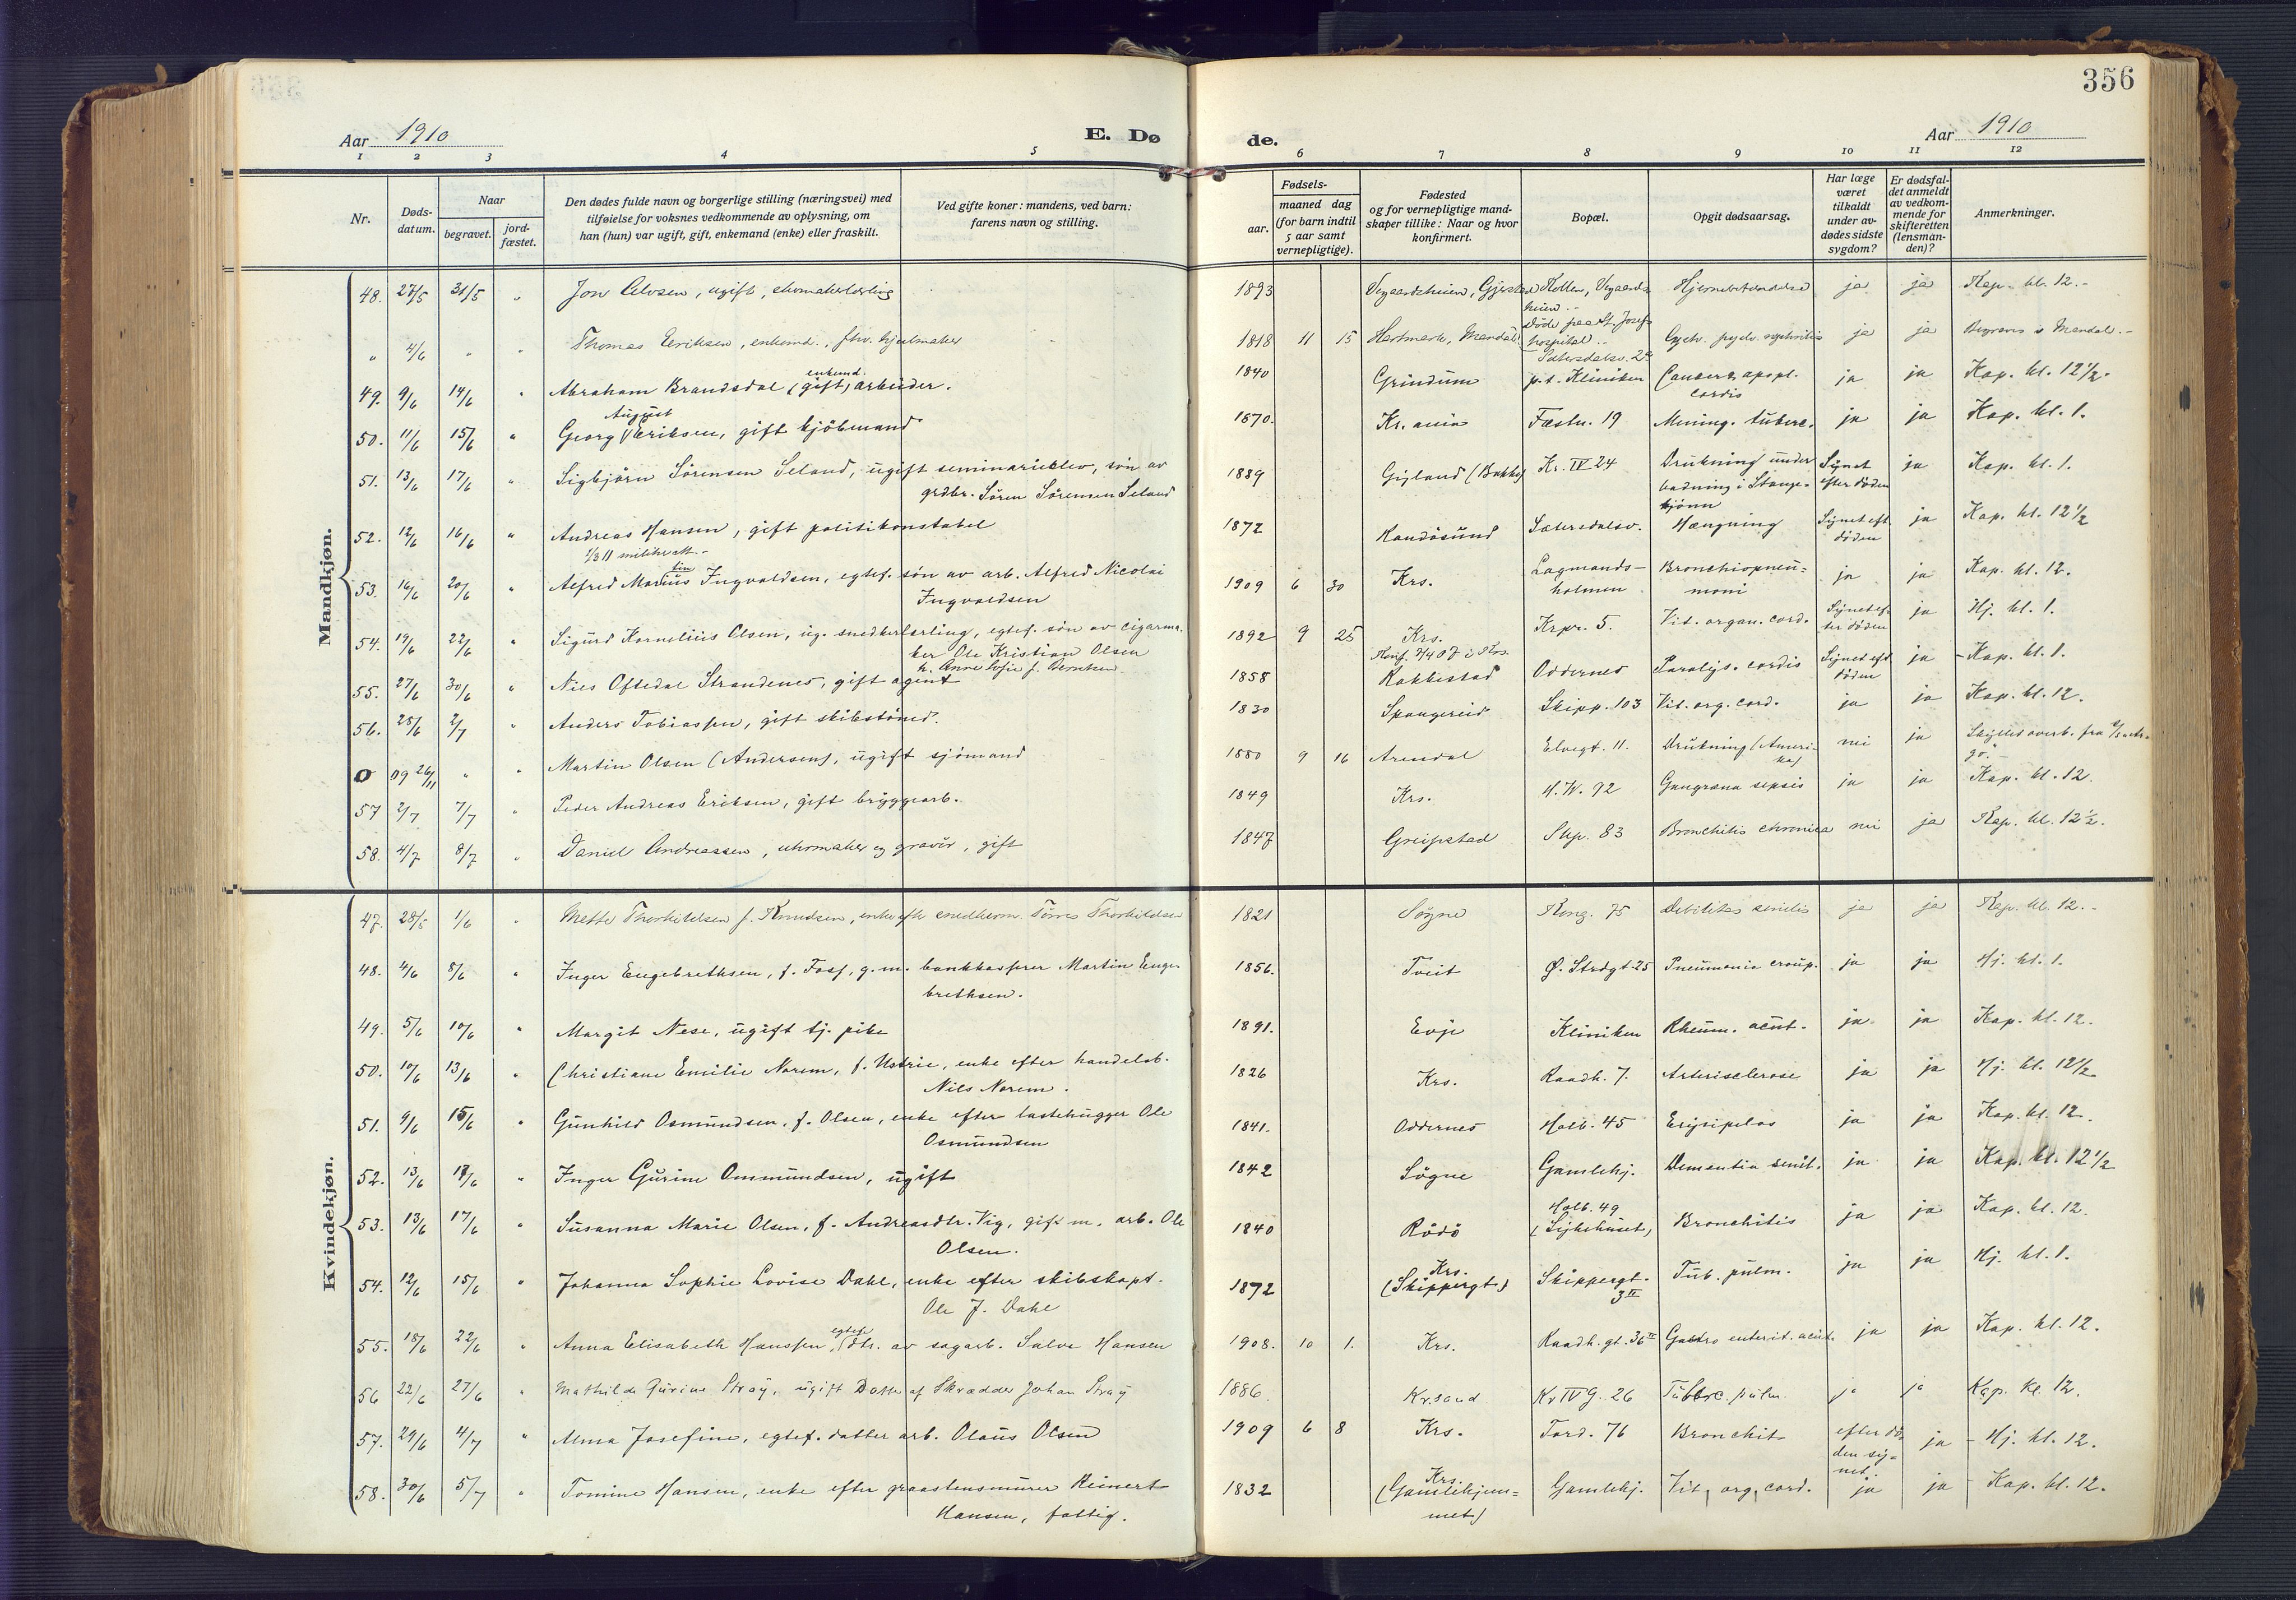 356
Aar 1910 E. Dø de. Aar 1910
1 2 3 4 5 6 7 8 9 10 11 12
Nr.
Døds-
datum.
Naar
begravet.
jord-
fæstet.
Den dødes fulde navn og borgerlige stilling (næringsvei) med
tilføielse for voksnes vedkommende av oplysning, om
han (hun) var ugift, gift, enkemand (enke) eller fraskilt.
Ved gifte koner: mandens, ved barn:
farens navn og stilling.
Fødsels-
aar.
maaned dag
(for barn indtil
5 aar samt
vernepligtige).
Fødested
og for vernepligtige mand-
skaper tillike: Naar og hvor
konfirmert.
Bopæl.
Opgit dødsaarsag.
Har læge
været
tilkaldt
under av-
dødes sidste
sygdom?
Er dødsfal-
det anmeldt
av vedkom-
mende for
skifteretten
(lensman-
den)?
Anmerkninger.
Mandkjøn.
48. 27/5 31/5 " Jon Olvsen, ugift, skomakerlærling 1893 Vegaardsheien, Gjerstad Kollen, Vegaards- Hjernebetændelse ja ja Kap. kl. 12.-
heien.-
" 4/6 " " Thomas Eriksen, enkemd., fhv. hjulmaker 1818 11 15 Hartmark, Mandal Døde paa St. Josefs ja ja Begraves i Mandal.-
hospital..
Sætersdalsv. 2
49. 9/6 14/6 " Abraham Brandsdal (gift) enkemd. arbeider. 1840 Grindum p.t. Kliniken Cancer & apopl. ja ja Kap. kl. 12 1/2.
cordis
50. 11/6 15/6 " Georg August Eriksen, gift kjöbmand 1870. Kr.ania Fæstn. 19 Mening. tuberc. ja ja Kap. kl. 1.
51. 13/6 17/6 " Sigbjörn Sörensen Seland, ugift seminarielev, sön av 1889 Gyland (Bakke) Kr. IV 24 Drukning under Synet ja Kap. kl. 1.
grdbr. Sören Sörensen Seland badning i Stange- efter döden
kjönn
52. 12/6 16/6 " Andreas Hansen, gift politikonstabel 1872 Randösund Sætersdalsv. Hængning Synet eft. ja Kap. kl. 12 1/2
döden
53. 16/6 20/6 " Alfred Marius tin Ingvaldsen, egtef. sön av arb. Alfred Nicolai 1909 6 30 Krs. Lagmands- Bronchiopneu- ja ja Kap. kl. 12.
Ingvaldsen holmen moni
54. 19/6 22/6 " Sigurd Kornelius Olsen, ug. snedkerlærling, egtef. sön av cigarma- 1892 9 25 Krs. Krpr. 5. Vit. organ. cord. Synet ef- ja Hj. kl. 1.
ker Ole Kristian Olsen ter döden
h. Anne Sofie f. Berntsen
55. 27/6 30/6 " Nils Oftedal Strandenes, gift agent 1858 Rakkestad Oddernes Paralys. cordis Synet eft. ja - Kap. kl. 1.
döden
56. 28/6 2/7 " Anders Tobiassen, gift skibstömd. 1830 Spangereid Skipp. 103 Vit. org. cord. ja ja Kap. kl. 12.
0 09 26/11 " " Martin Olsen (Andersen), ugift sjömand 1880 9 16 Arendal Elvegt. 11. Drukning (Ameri- nei ja
ka)
57 2/7 7/7 " Peder Andreas Eriksen, gift bryggearb. 1849 Krs. H.W. 92 Gangræna sepsis ja ja Kap. kl. 12.
58. 4/7 8/7 " Daniel Andreassen, uhrmaker og gravör, gift 1847 Greipstad Skp. 83 Bronchitis chronica nei ja Kap. kl. 12 1/2.
Kvindekjøn.
47. 28/5 1/6 " Mette Thorkildsen f. Knudsen, enke eft. snedkerm. Tørres Thorkildsen 1821 Søgne Kong. 75 Debilitas senilis ja ja Kap. kl. 12.-
48. 4/6 8/6 " Inger Engebrethsen, f. Foss, g. m. bankkasserer Martin Enge- 1856. Tveit Ø. Strdgt 25 Pneumonia croup. ja ja Hj. kl. 1.
brethsen.
49. 5/6 10/6 " Margit Nese, ugift tj. pike 1891. Evje Kliniken Rheum. acut. ja ja Kap. kl. 12.
50. 10/6 13/6 " Christiane Emilie Norem, f. Ustrie, enke efter handelsb. 1826 Krs. Raadh. 7. Arterisclerose ja ja Hj. kl. 12 1/2
Nils Norem.
51. 9/6 15/6 " Gunhild Osmundsen, f. Olsen, enke efter lastehugger Ole 1841. Oddernes Holb. 45 Erysipelas ja ja Kap. kl. 12.
Osmundsen
52. 13/6 18/6 " Inger Gurine Ommundsen, ugift 1842 Sögne Gamlehj. Dementia senil. ja ja Kap. kl. 12 1/2
53. 13/6 17/6 " Susanna Marie Olsen, f. Andreasdtr. Vig, gift m. arb. Ole 1840 Rödö Holb. 49 Bronchitis ja ja Kap. kl. 12.
Olsen. (Sykehuset)
54. 12/6 15/6 " Johanna Sophie Lovise Dahl, enke efter skibskapt. 1872 Krs. Skippergt. Tub. pulm. ja ja Hj. kl. 1.
Ole J. Dahl (Skippergt.) 3 II
55. 18/6 22/6 " Anna Elisabeth Hanssen, egtef. dtr. av sagarb. Salve Hansen 1908. 10 1. Krs. Raadh. gt. 36 II Gastro enterit. acut. ja ja Kap. kl. 12.
56 22/6 27/6 " Mathilde Gurine Stray, ugift Datter af Skrædder Johan Stray 1886. Kr.sand Kr IV G. 26 Tuberc. pulm. ja ja Kap. Kl. 12.
57. 29/6 4/7 " Alma Josefine, egtef. datter arb. Olaus Olsen 1909 6 8 Krs. Tord. 76 Bronchit. efter dö- ja - Hj. kl. 12.
den sy-
net.
58. 30/6 5/7 " Tomine Hansen, enke efter graastensmurer Reinert 1832 Krs. Gamlehj. Vit. org. cord. ja ja - Kap. kl. 12.
Hansen, fattig. (Gamlehjem-
met)